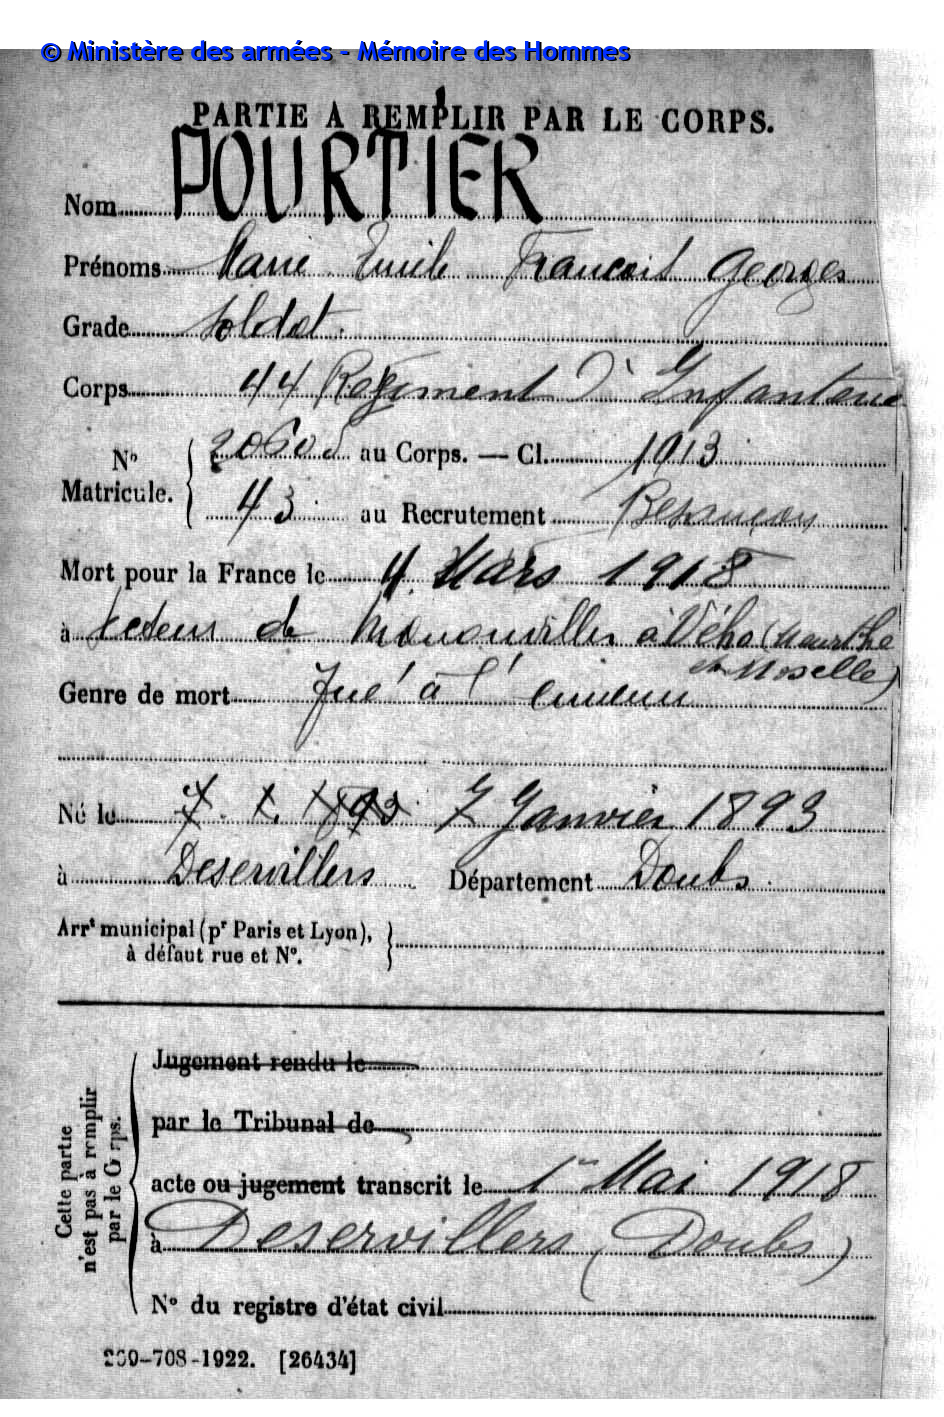 © Ministère des armées - Mémoire des Hommes
PARTIE A REMPLIR PAR LE CORPS.
Nom POURTIER
Prénoms Marie Emile Francois Georges
Grade Soldat.
Corps 44 Regiment d'Infanterie
N° Matricule. 20605 au Corps. — Cl. 1913
43 au Recrutement Besançon
Mort pour la France le 4 Mars 1918
à Secteur de Manonviller à Vého (Meurthe
et Moselle)
Genre de mort Tué à l'ennemi
Né le 7. 1. 1893 7 Janvier 1893
à Deservillers Département Doubs.
Arrt municipal (pr Paris et Lyon),
à défaut rue et N°.
Cette partie n'est pas à remplir par le Corps.
Jugement rendu le
par le Tribunal de
acte ou jugement transcrit le 1er Mai 1918
à Deservillers (Doubs)
N° du registre d'état civil
-708-1922. [26434]